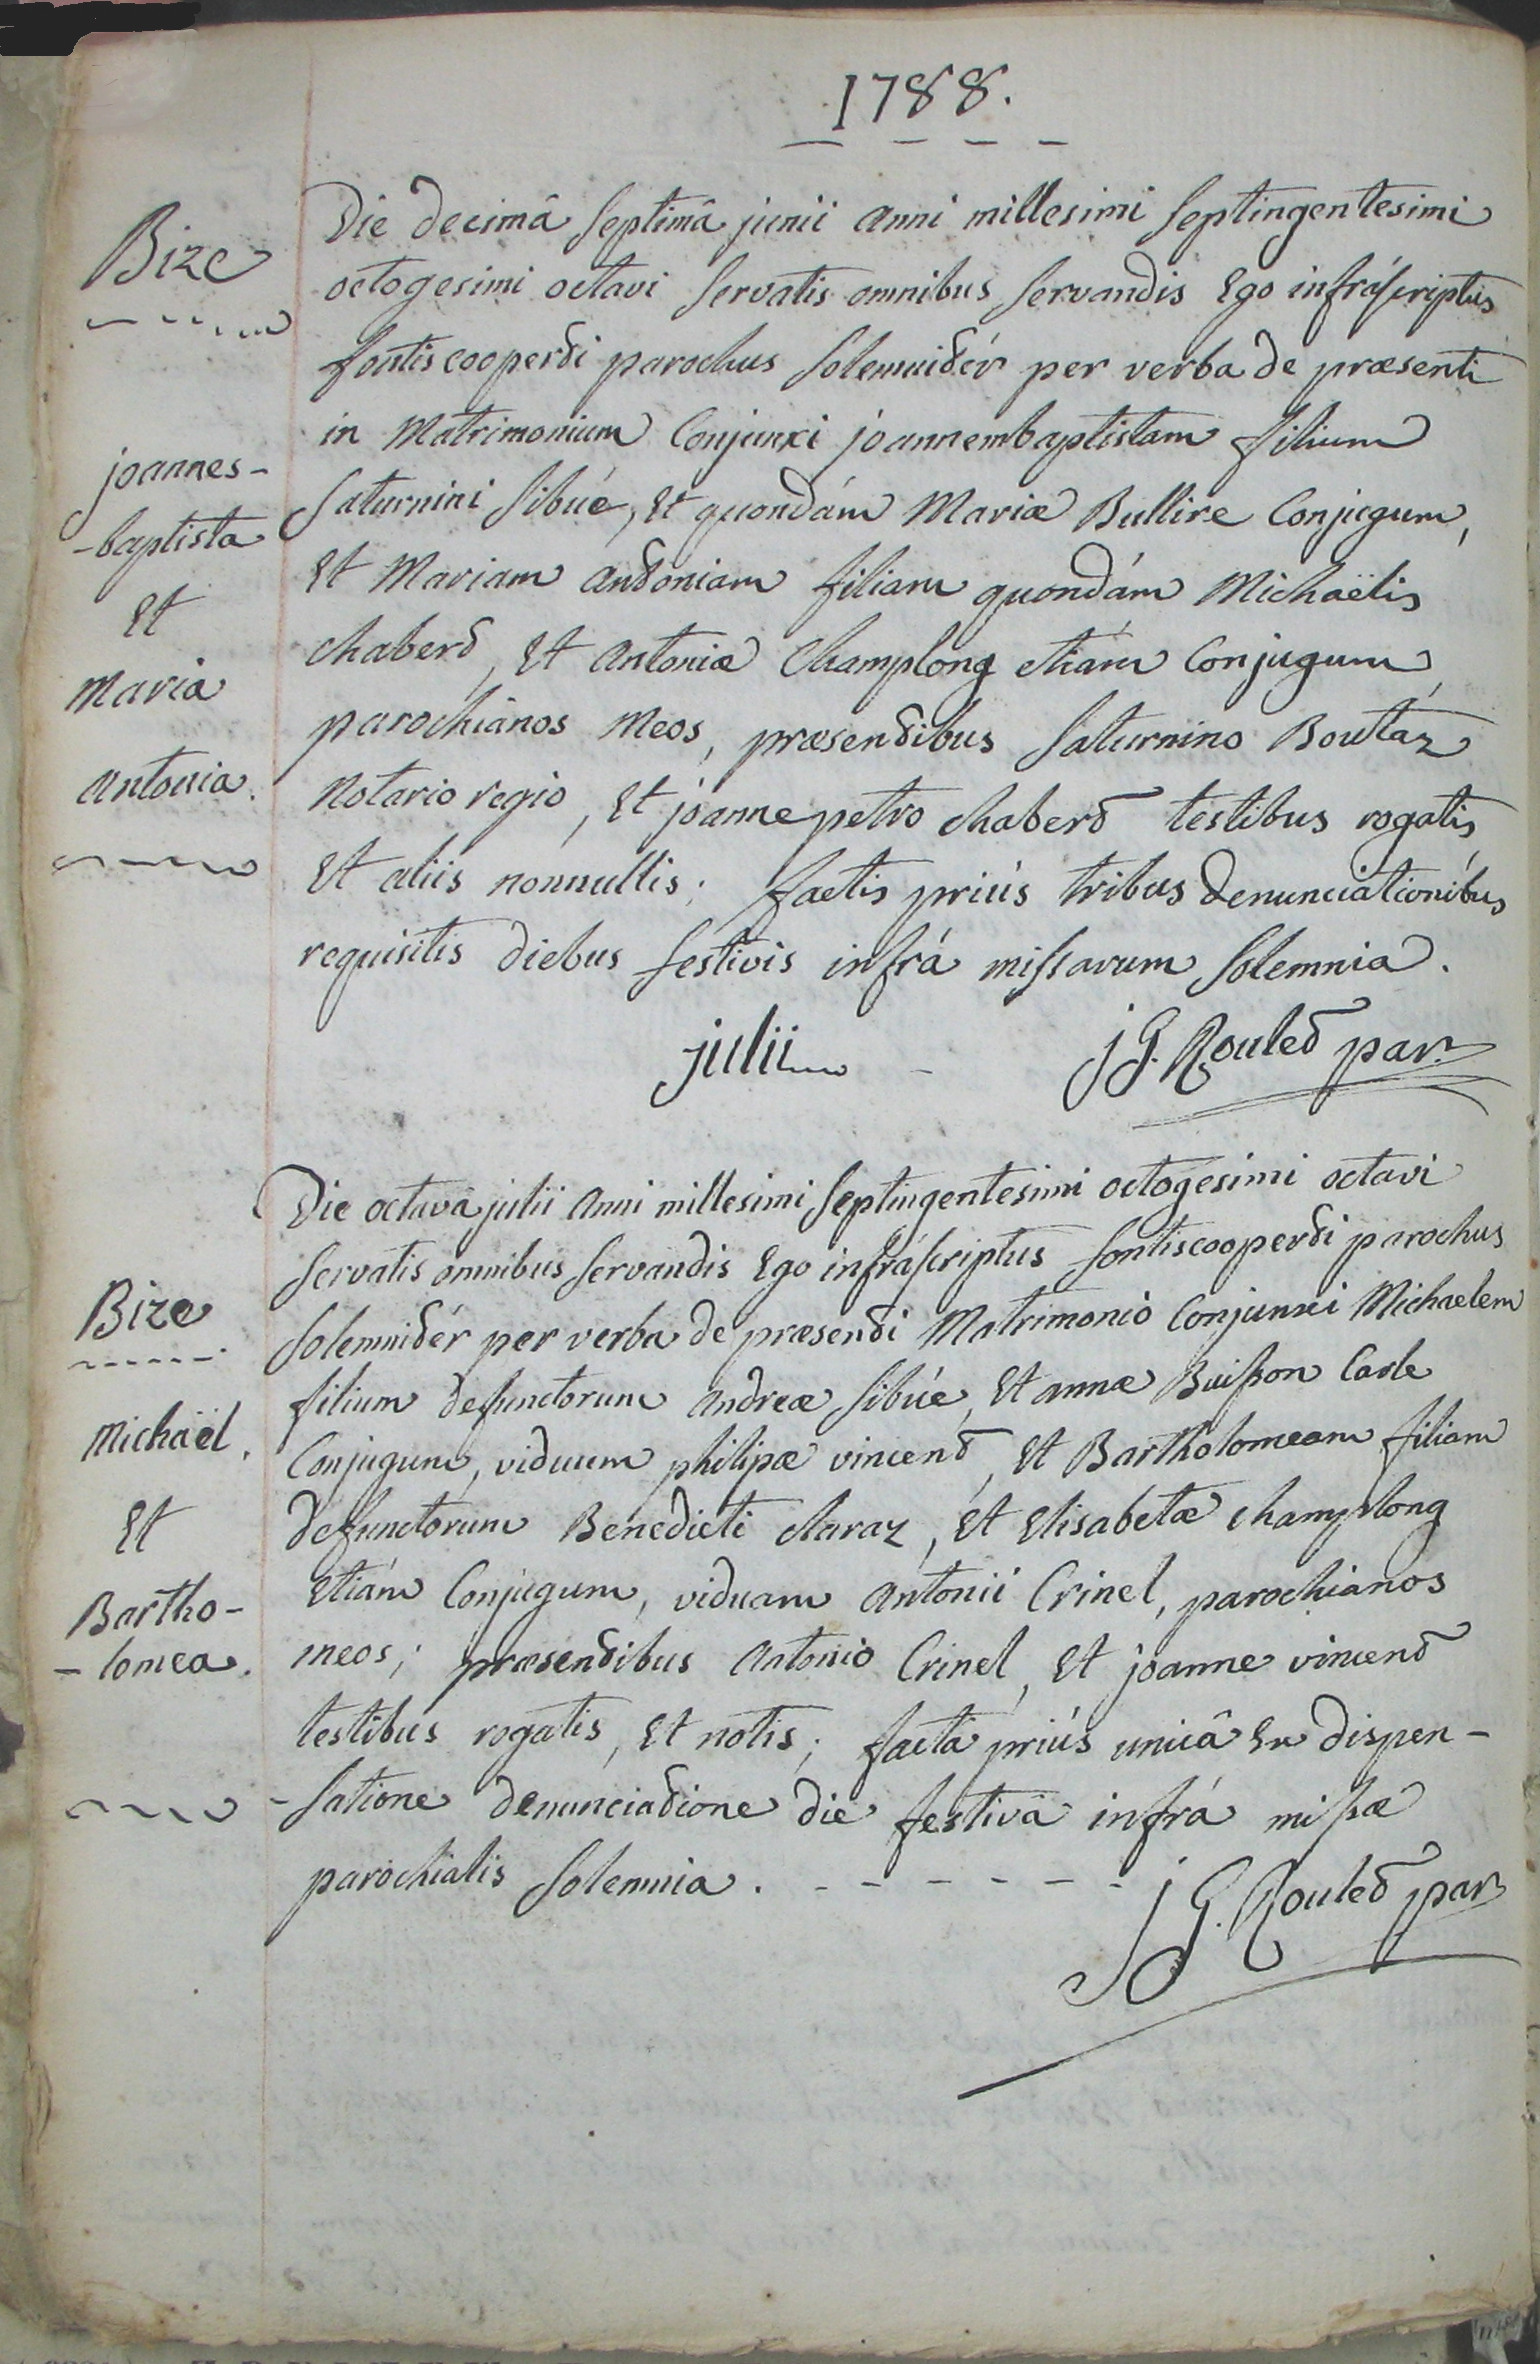 1788.
Bize
Die decimâ septimâ junii anni millesimi septingentesimi
octogesimi octavi servatis omnibus servandis Ego infráscriptus
fontiscooperti parochus solemnitér per verba de præsenti
in Matrimonium Conjunxi joannembaptistam filium
Saturnini Sibué, Et quondám Mariæ Bullire Conjugum,
Et Mariam antoniam filiam quondám Michaëlis
chabert, Et antoniæ Champlong etiám Conjugum,
parochianos Meos, præsentibus Saturnino Boutáz
Notario regio, Et joannepetro chabert testibus rogatis,
Et aliis nonnullis; factis priús tribus denunciationibus
requisitis diebus festivis infrá missarum solemnia.
joannes-
-baptista
Et
Maria
antonia.
julii
j G. Roulet par.
Die octavâ julii anni millesimi septingentesimi octogesimi octavi
servatis omnibus servandis Ego infráscriptus fontiscooperti parochus
solemnitér per verba de præsenti Matrimonio Conjunxi Michaelem
filium defunctorum andreæ Sibúe, Et annæ Buisson Carle
Conjugum, viduum philipæ vincent, Et Bartholomeam filiam
defunctorum Benedicti claraz, Et Elisabetæ champlong
Etiám Conjugum, viduam antonii Crinel, parochianos
meos; præsentibus antonio Crinel, Et joanne vincent
testibus rogatis, Et notis; factâ priús unicâ Ex dispen-
-satione denunciatione die festivâ infrá missæ
parochialis solemnia.
Bize
Michaël.
Et
Bartho-
-lomea.
j G. Roulet par